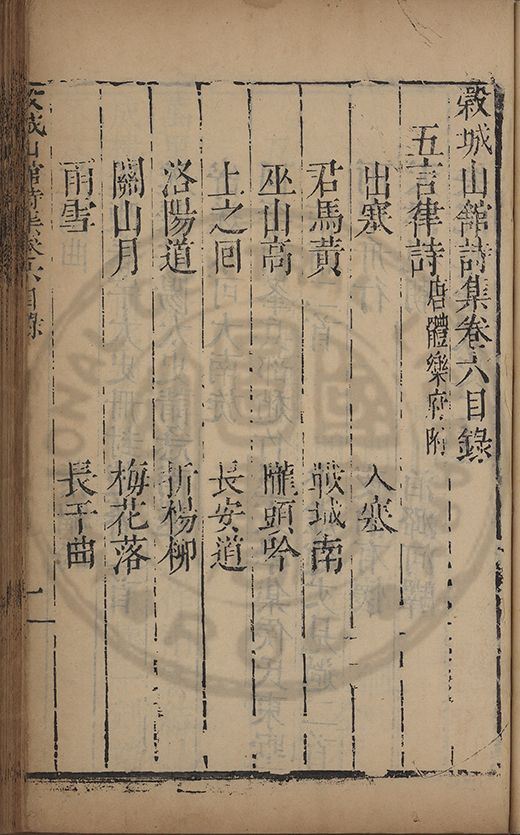 穀城山館詩集卷六目錄
五言律詩 唐體樂府附
出塞 入塞
君馬黃 戰城南
巫山高 隴頭吟
上之回 長安道
洛陽道 折楊柳
關山月 梅花落
雨雪 長干曲
穀城山館詩集卷六目錄 一